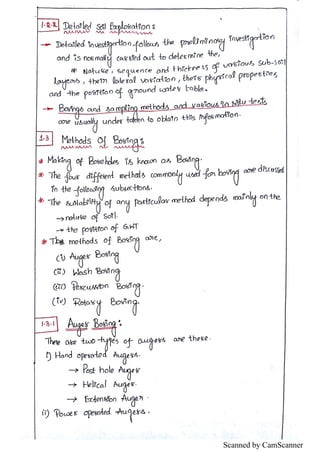 1.2.2 Detailed Soil Exploration:
→ Detailed investigation follows the preliminary investigation
and is normally carried out to determine the,
* Nature, sequence and thickness of various sub-soil
layers, their lateral variation, there physical properties,
and the position of ground water table.
→ Borings and sampling methods and various in situ tests
are usually under taken to obtain this information.
1.3 Methods Of Boring:
* Making of Boreholes is known as Boring.
* The four different methods commonly used for boring are discussed
in the following subsections.
* The suitability of any particular method depends mainly on the
→ nature of soil.
→ the position of GWT
* The methods of Boring are,
(i) Auger Boring
(ii) Wash Boring
(iii) Percussion Boring.
(iv) Rotary Boring.
1.3.1 Auger Boring:
There are two types of augers are there.
i) Hand operated Augers.
→ Post hole Auger
→ Helical Auger.
→ Extension Auger.
ii) Power operated Augers.
Scanned by CamScanner